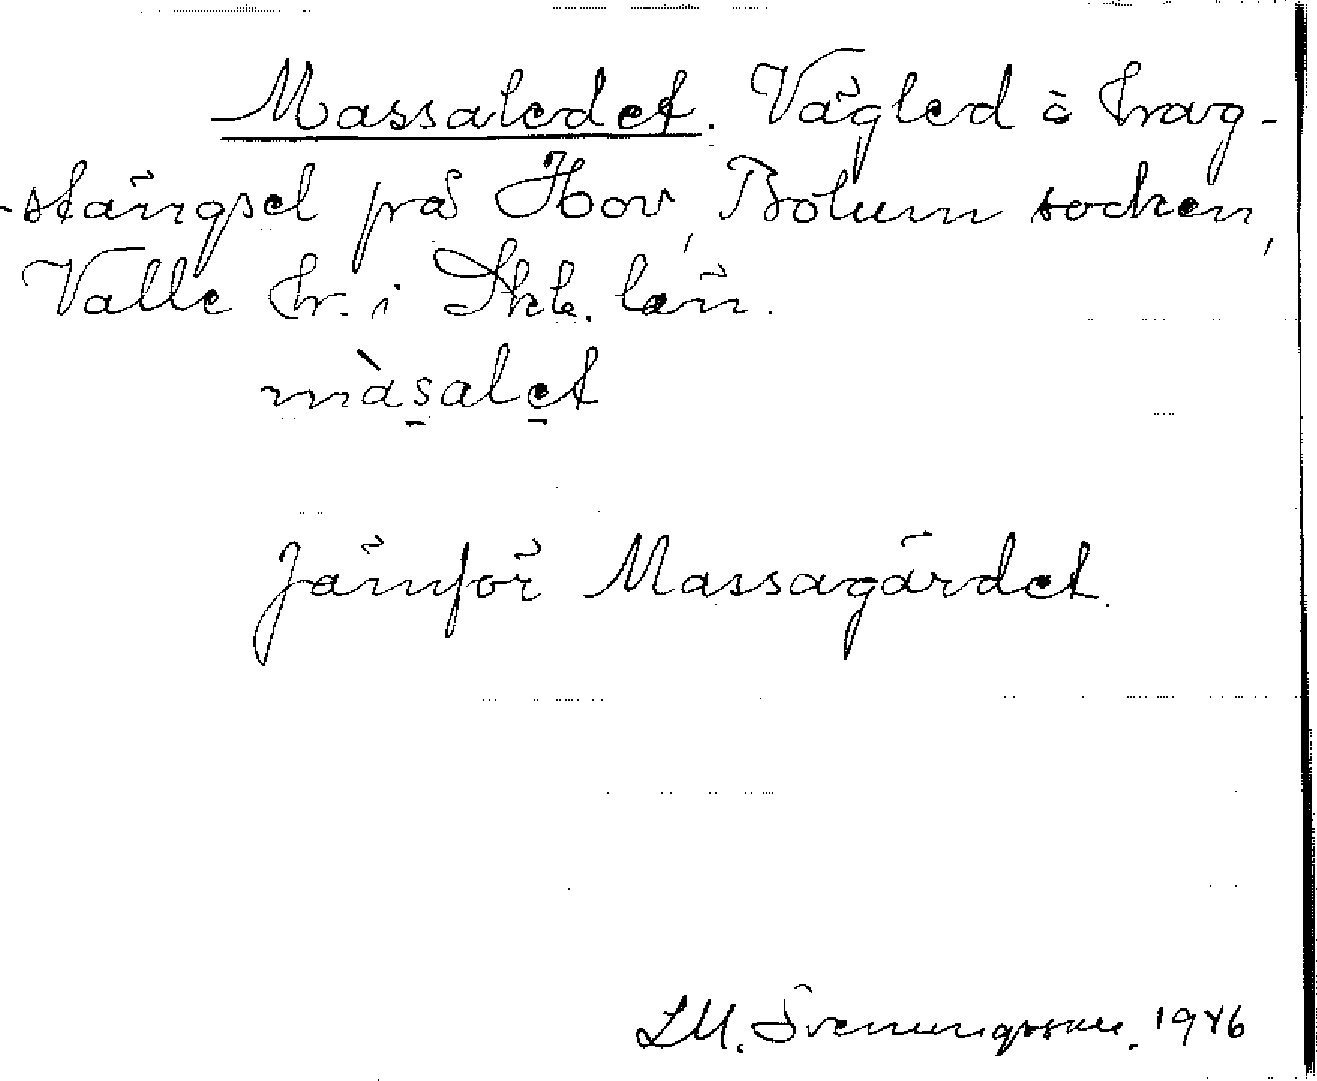 Massaledet. Vägled å hag-
-stängsel på Hov, Bolum socken,
Valle hr. i Skb. län.
màsalet
Jämför Massagärdet.
LM. Svenungsson. 1946